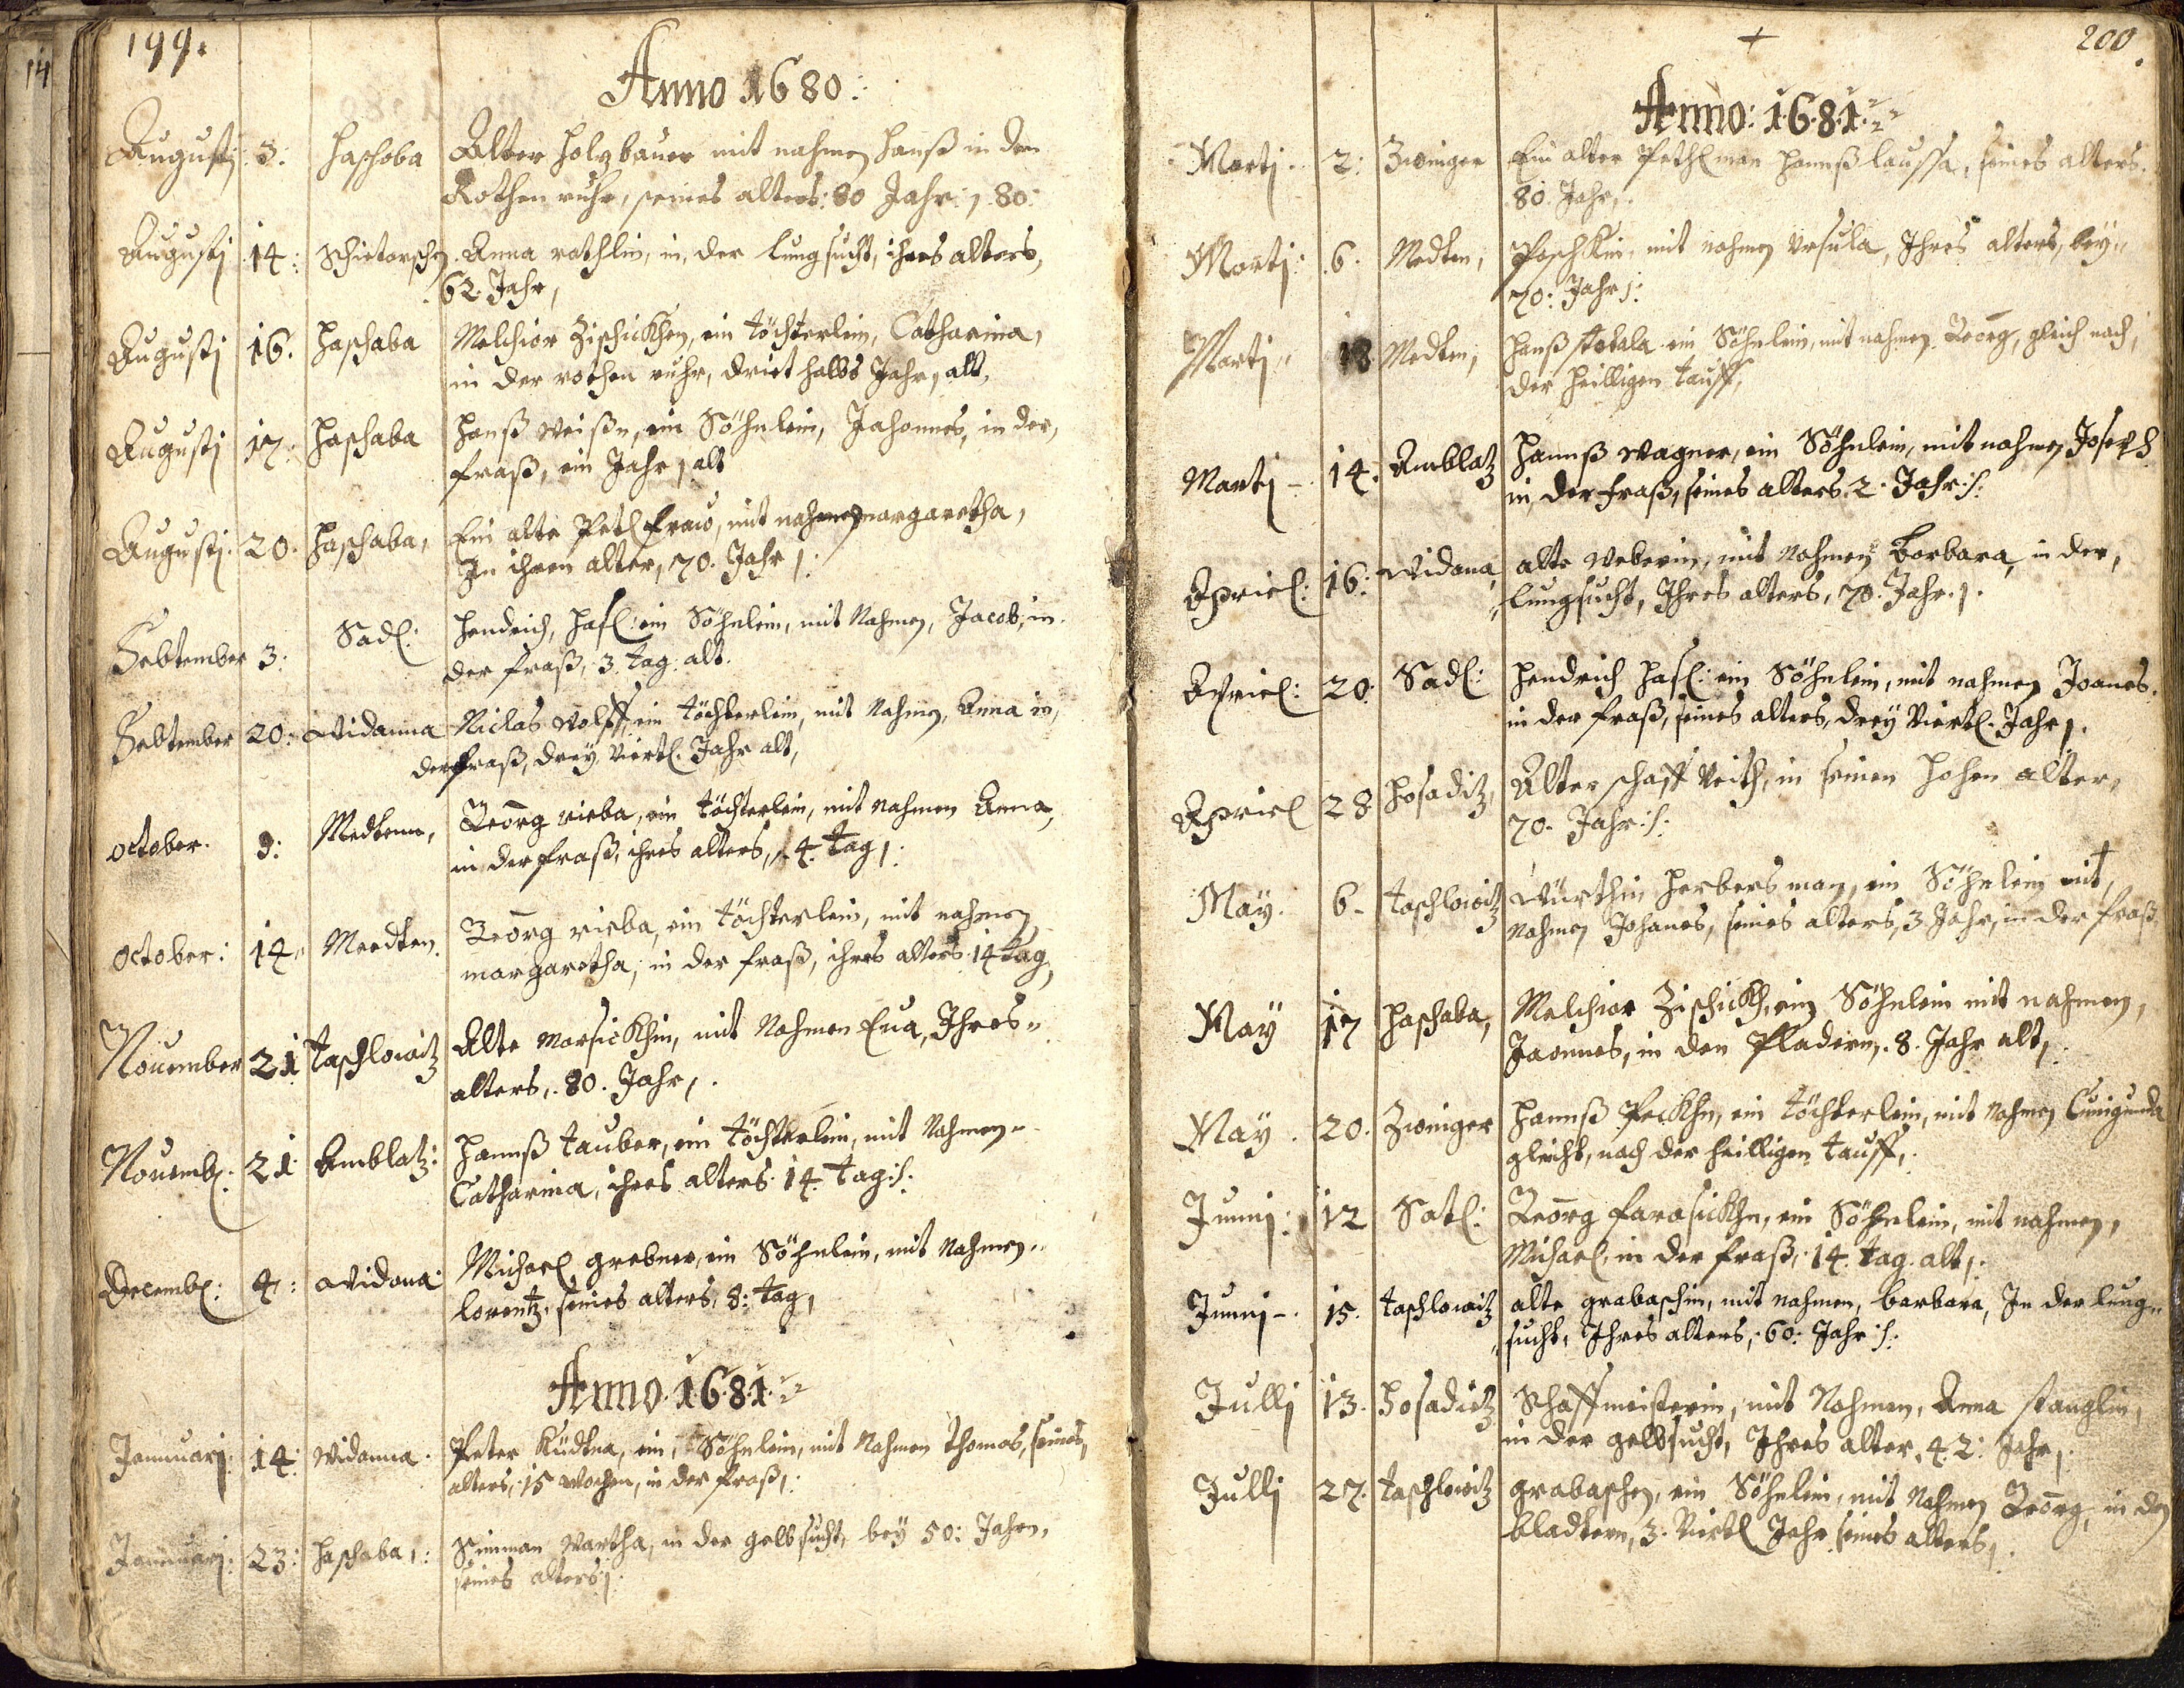 199.
Anno 1680:
Augustj 3: Haschoba Alter Holzbauer mit nahmen Hanß in der
Rothen ruhr, seines alters: 80 Jahr: 80:
Augustj 14: Anna rathlin, in, der lungsucht, ihres alters,
62. Jahr,
Augustj 16. Haschaba Melchior Zischickhen, ein töchterlein, Catharina,
in der rothen ruhr, driet halbs Jahr, alt,
Augustj 17: Haschaba Hanß weißn, ein Söhnlein, Johonnes, in der,
fraß, ein Jahr, alt
Augustj. 20. Haschaba, Ein alte Petl fraw, mit nahmen margaretha,
In ihren alter, 70. Jahr,.
Sebtember 3: Sadl: Hendrich, Hasl: ein Söhnlein, mit Nahmen, Jacob, in
der fraß, 3. tag. alt.
Sebtember 20: Widanna Niclas Wolff, ein töchterlein, mit Nahmen, Anna in,
der fraß, drey Viertl. Jahr alt,
october. 9: Medkenn, Georg rieba, ein töchterlein, mit Nahmen Anna,
in der fraß, ihres alters, 4. tag,.
october: 14. Meedken. Georg rieba, ein töchterlein, mit nahmen,
margaretha, in der fraß, ihres alters. 14 tag,
Nouember 21 taschlowitz Alte Marsickhin, mit Nahmen Eua, Ihres
alters,. 80. Jahr,.
Nouemb: 21 Amblatz: Hannß tauber, ein töchterlein, mit Nahmen
Catharina, ihres alters. 14. tag:/:
Decembl: 4: Widona Michael grebner, ein Söhnlein, mit Nahmen
lorentz, seines alters, 8: tag,
Anno. 1681.
Januuarj: 14: widanna. Peter Küdtna, ein, Söhnlein, mit Nahmen Thomas, seines,
alters, 15 wochen, in der fraß,.
Januuarj: 23: Haschaba,: Simman Wartha, in der gelb sucht, bey 50: Jahrn,
seines alters,.
200.
Anno: 1681:
Martj 2: Zwinger Ein alter Pethlman Hannß laussa, seines alters.
80. Jahr,.
Martj: 6. Medken, Poschkin, mit nahmen Vrsula, Ihres alters, bey
70: Jahr,:
Martj Medken, Hanß stekala ein Söhnlein, mit nahmen Georg, gleich nach,
der Heilligen tauff,
Martj 14. Amblatz Hannß wagner, ein Söhnlein, mit nahmen Joseph
in, der fraß, seines alters. 2. Jahr:/:
Apriel: 16: Widana, alte Weberin, mit Nahmen Borbara, in der,
lungsucht, Ihres alters, 70. Jahr.
Apriel: 20: Sadl: Hendrich Hasl: ein Söhnlein, mit nahmen Joanes.
in der fraß, seines alters, drey Viertl. Jahr,.
Apriel 28 Hosaditz, Alter schaff Veith, in seinen Hohen alter,
70. Jahr:/:
May. 6. taschlowitz Würthin Herbersman, ein Söhnlein mit,
Nahmen Johanes, seines alters, 3 Jahr, in der fraß
May 17 Haschaba, Melchior Zischickh, ein Söhnlein mit nahmen,
Jaonnes, in den Pladern,. 8. Jahr alt,
May. 20. Zwinger Hannß Peickhn, ein töchterlein, mit Nahmen Cunigunda
gleicht, nach der Heilligen tauff,.
Junnj: 12 Satl: Georg farasickhn, ein Söhnlein, mit nahmen,
Michael, in der fraß, 14. tag. alt,.
Junnj 15. taschlowitz alte grabaschin, mit Nahmen, barbara, In der lung
sucht, Ihres alters, 60: Jahr:/:
Jullj 13. Hosadietz Schaffmeisterin, mit Nahmen, Anna stanglin,
in der gelbsucht, Ihres alter, 42: Jahr,.
Jullj 27. taschlowitz grabaschen, ein Söhnlein, mit Nahmen Georg, in den
bladtern, 3. Viertl Jahr seines alters,.